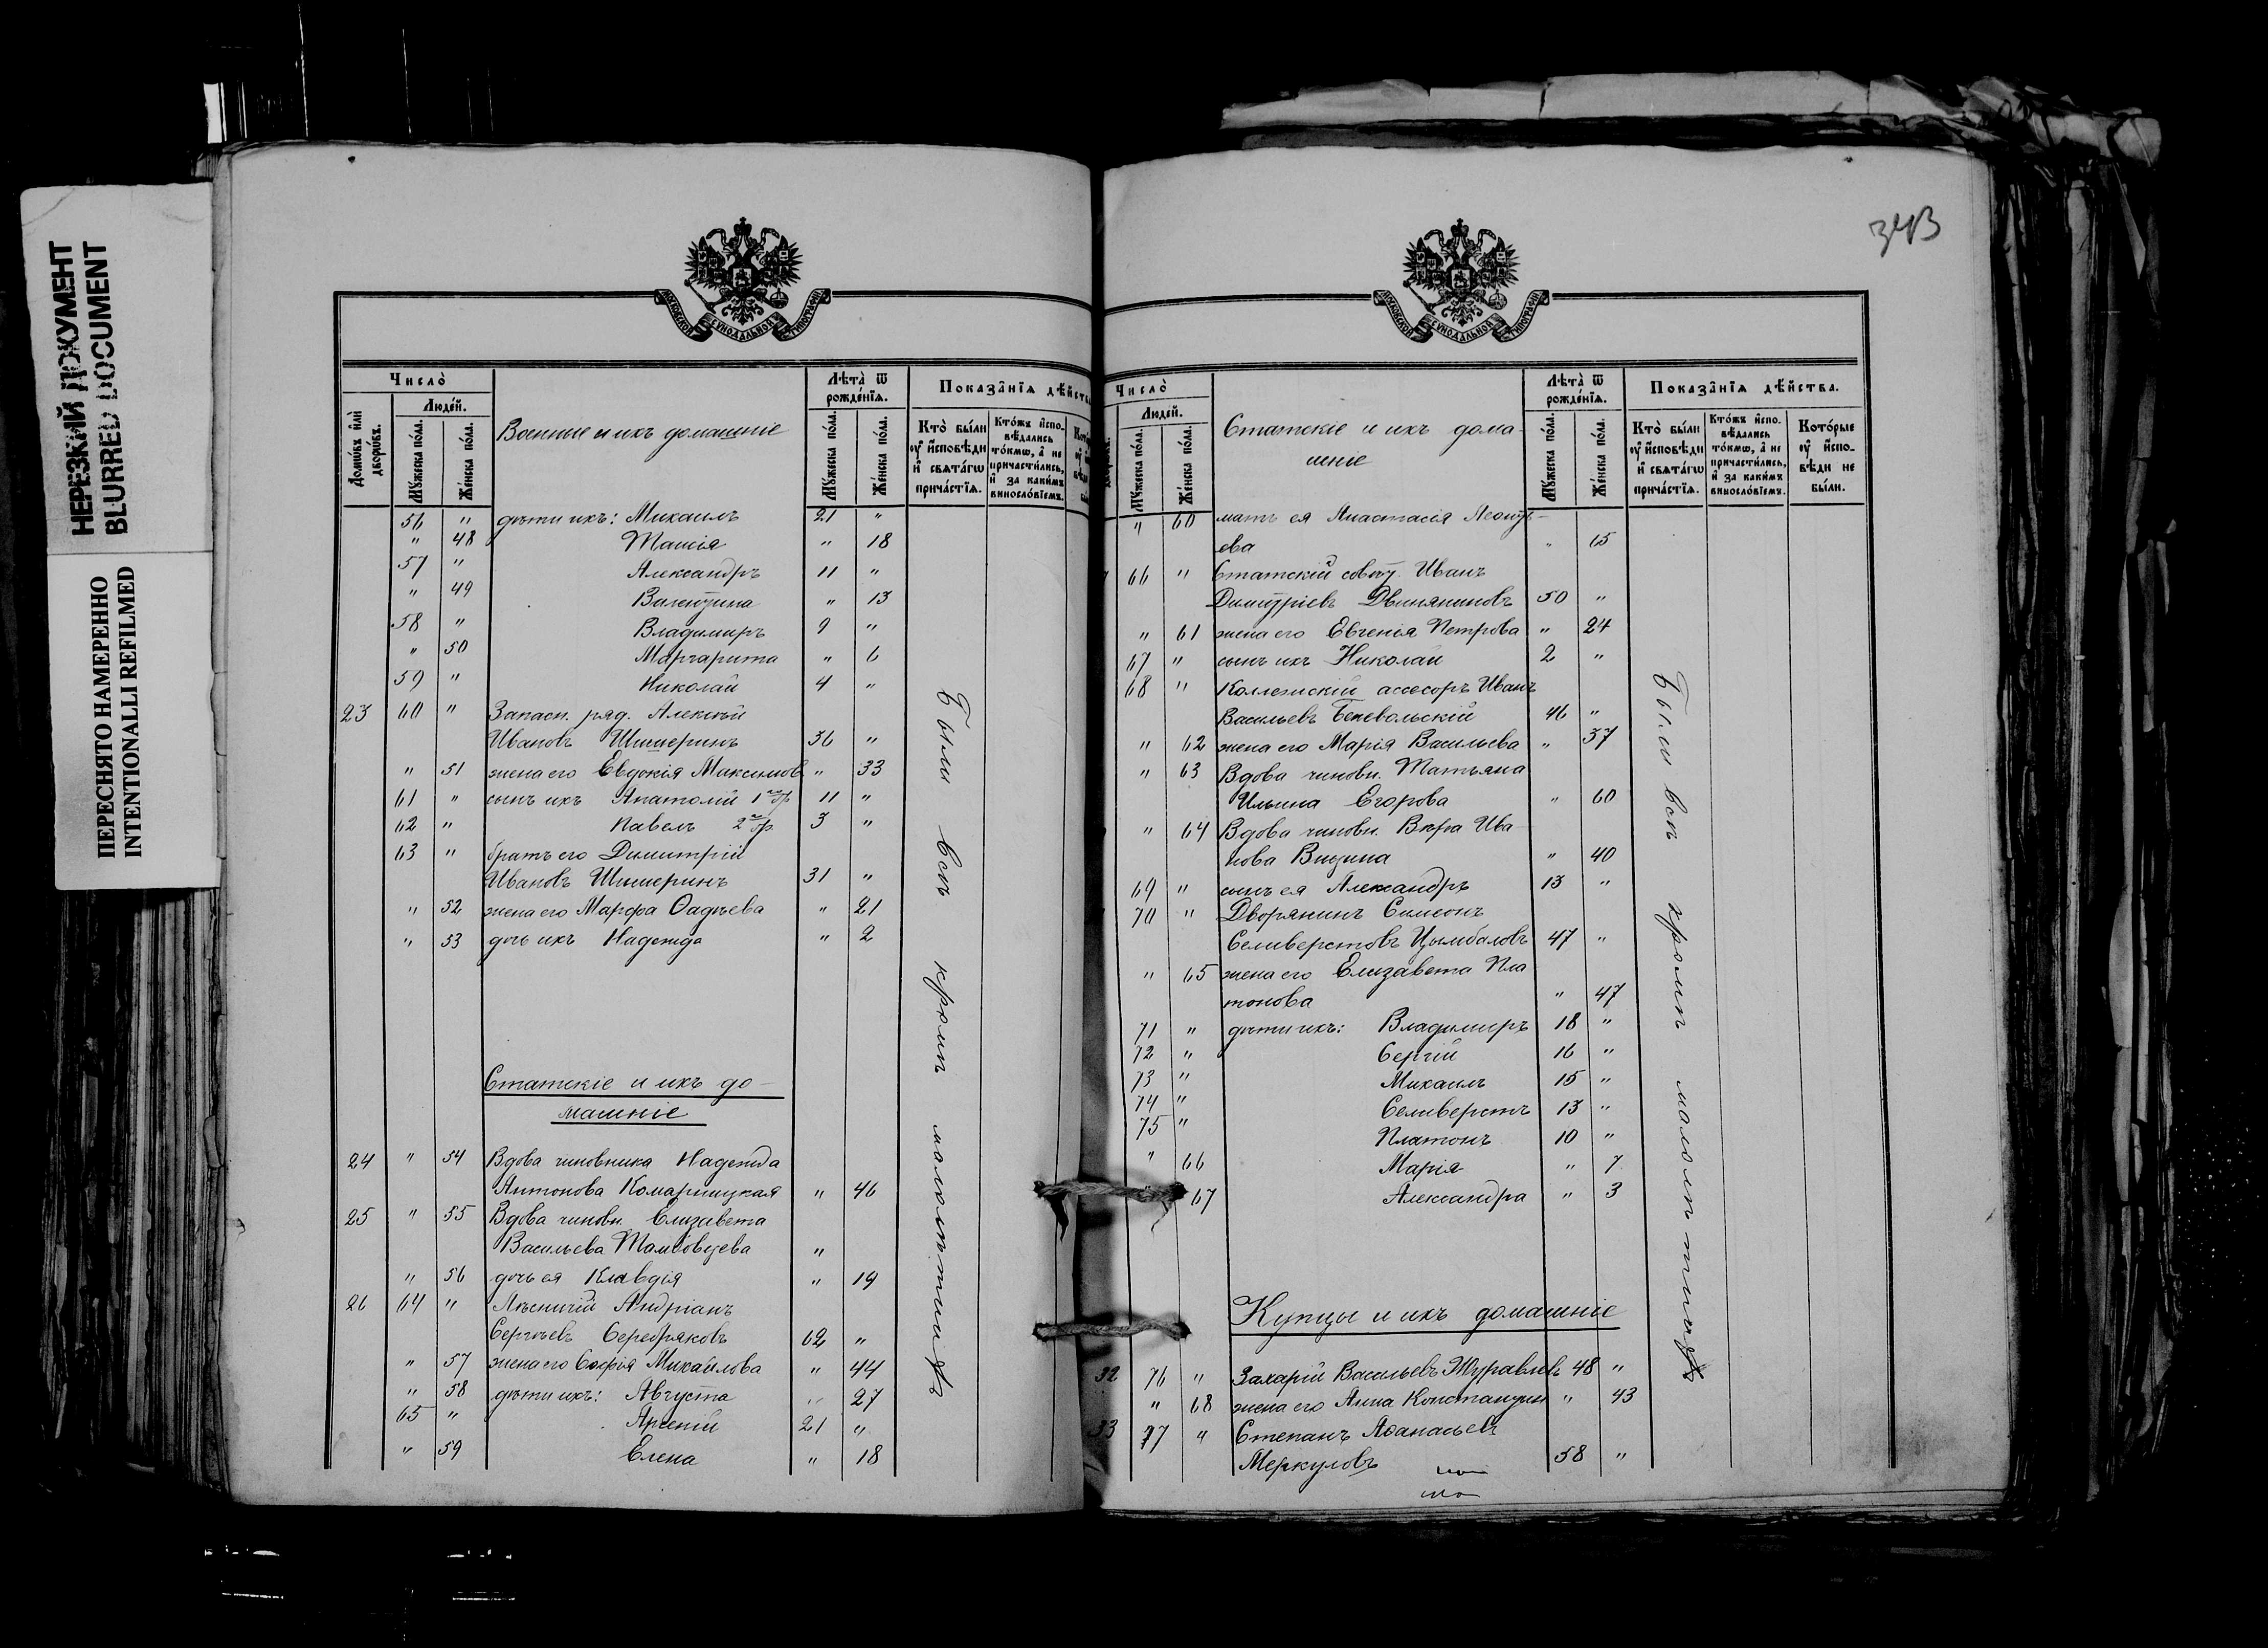 НЕРЕЗКИЙ ДОКУМЕНТ
BLURRED DOCUMENT
ПЕРЕСНЯТО НАМЕРЕННО
INTENTIONALLI REFILMED
МОСКОВСКОЙ СѴНОДАЛЬНОЙ ТИПОГРАФІИ
Число̀
Людéй.
Домѡ́въ и҆лѝ дворѡ́въ.
Мꙋ́жеска по́ла.
Же́нска по́ла.
Военные и ихъ домашніе
Лѣта̀ ѿ рожде́нїѧ.
Мꙋ́жеска по́ла.
Же́нска по́ла.
Показа̂нїѧ дѣ́йств
Кто̀ бы́ли оу҆ и҆сповѣди и҆ свѧта́гѡ прича́стїѧ.
Кто́жъ и҆спо-
вѣдались то́кмѡ, а҆ не причасти́лись, и҆ за каки́мъ винослόвїемъ.
56 " дѣти ихъ: Михаилъ 21 "
" 48 Таисія " 18
57 " Александръ 11 "
" 49 Валентина " 13
58 " Владимиръ 9 "
" 50 Маргарита " 6
59 " Николай 4 "
23 60 " Запасн. ряд. Алексѣй
Ивановъ Шишеринъ 36 "
" 51 жена его Евдокія Максимов " 33
61 " сынъ ихъ Анатолій 1го бр 11 "
62 " Павелъ 2го бр. 3 "
63 " братъ его Димитрій
Ивановъ Шишеринъ 31 "
" 52 жена его Марфа Ѳадѣева " 21
" 53 дочь ихъ Надежда " 2
Статскіе и ихъ до-
машніе
24 " 54 Вдова чиновника Надежда
Антонова Комарницкая " 46
25 " 55 Вдова чиновн. Елизавета
Васильева "
" 56 дочь ея Клавдія " 19
26 64 " Лѣсничій Андріанъ
Сергѣевъ Серебряковъ 62 "
" 57 жена его Софія Михайлова " 44
" 58 дѣти ихъ: Августа " 27
65 " Арсеній 21 "
" 59 Елена " 18
Были всѣ кромѣ малолѣтнихъ
343
МОСКОВСКОЙ СѴНОДАЛЬНОЙ ТИПОГРАФІИ
Число̀
Людéй.
Мꙋ́жеска по́ла.
Же́нска по́ла.
Статскіе и ихъ дома-
шніе
Лѣта̀ ѿ рожде́нїѧ.
Мꙋ́жеска по́ла.
Же́нска по́ла.
Показа̂нїѧ дѣ́йства.
Кто̀ бы́ли оу҆ и҆сповѣди и҆ свѧта́гѡ прича́стїѧ.
Кто́жъ и҆спо-
вѣдались то́кмѡ, а҆ не причасти́лись, и҆ за каки́мъ винослόвїемъ.
Кото́рые оу҆ и҆спо-
вѣди не бы́ли.
" 60 мать ея Анастасія Леонть-
ева " 65
66 " Статскій совѣт. Иванъ
Димитріевъ Двиняниновъ 50 "
" 61 жена его Евгенія Петрова " 24
67 " сынъ ихъ Николай 2 "
68 " Коллежскій ассесоръ Иванъ
Васильевъ Беневольскій 46 "
" 62 жена его Марія Васильева " 37
" 63 Вдова чиновн. Татьяна
Ильина Егорова " 60
" 64 Вдова чиновн. Вѣра Ива-
нова " 40
69 " сынъ ея Александръ 13 "
70 " Дворянинъ Симеонъ
Селиверстовъ Цымбаловъ 47 "
" 65 жена его Елизавета Пла
тонова " 47
71 " дѣти ихъ: Владимиръ 18 "
72 " Сергій 16 "
73 " Михаилъ 15 "
74 " Селиверстъ 13 "
75 " Платонъ 10 "
" 66 Марія " 7
67 Александра " 3
Купцы и ихъ домашніе
32 76 " Захарій Васильевъ Журавлевъ 48 "
" 68 жена его Анна Константин " 43
33 77 " Степанъ Аѳанасьевъ
Меркуловъ 58 "
Были всѣ кромѣ малолѣтнихъ